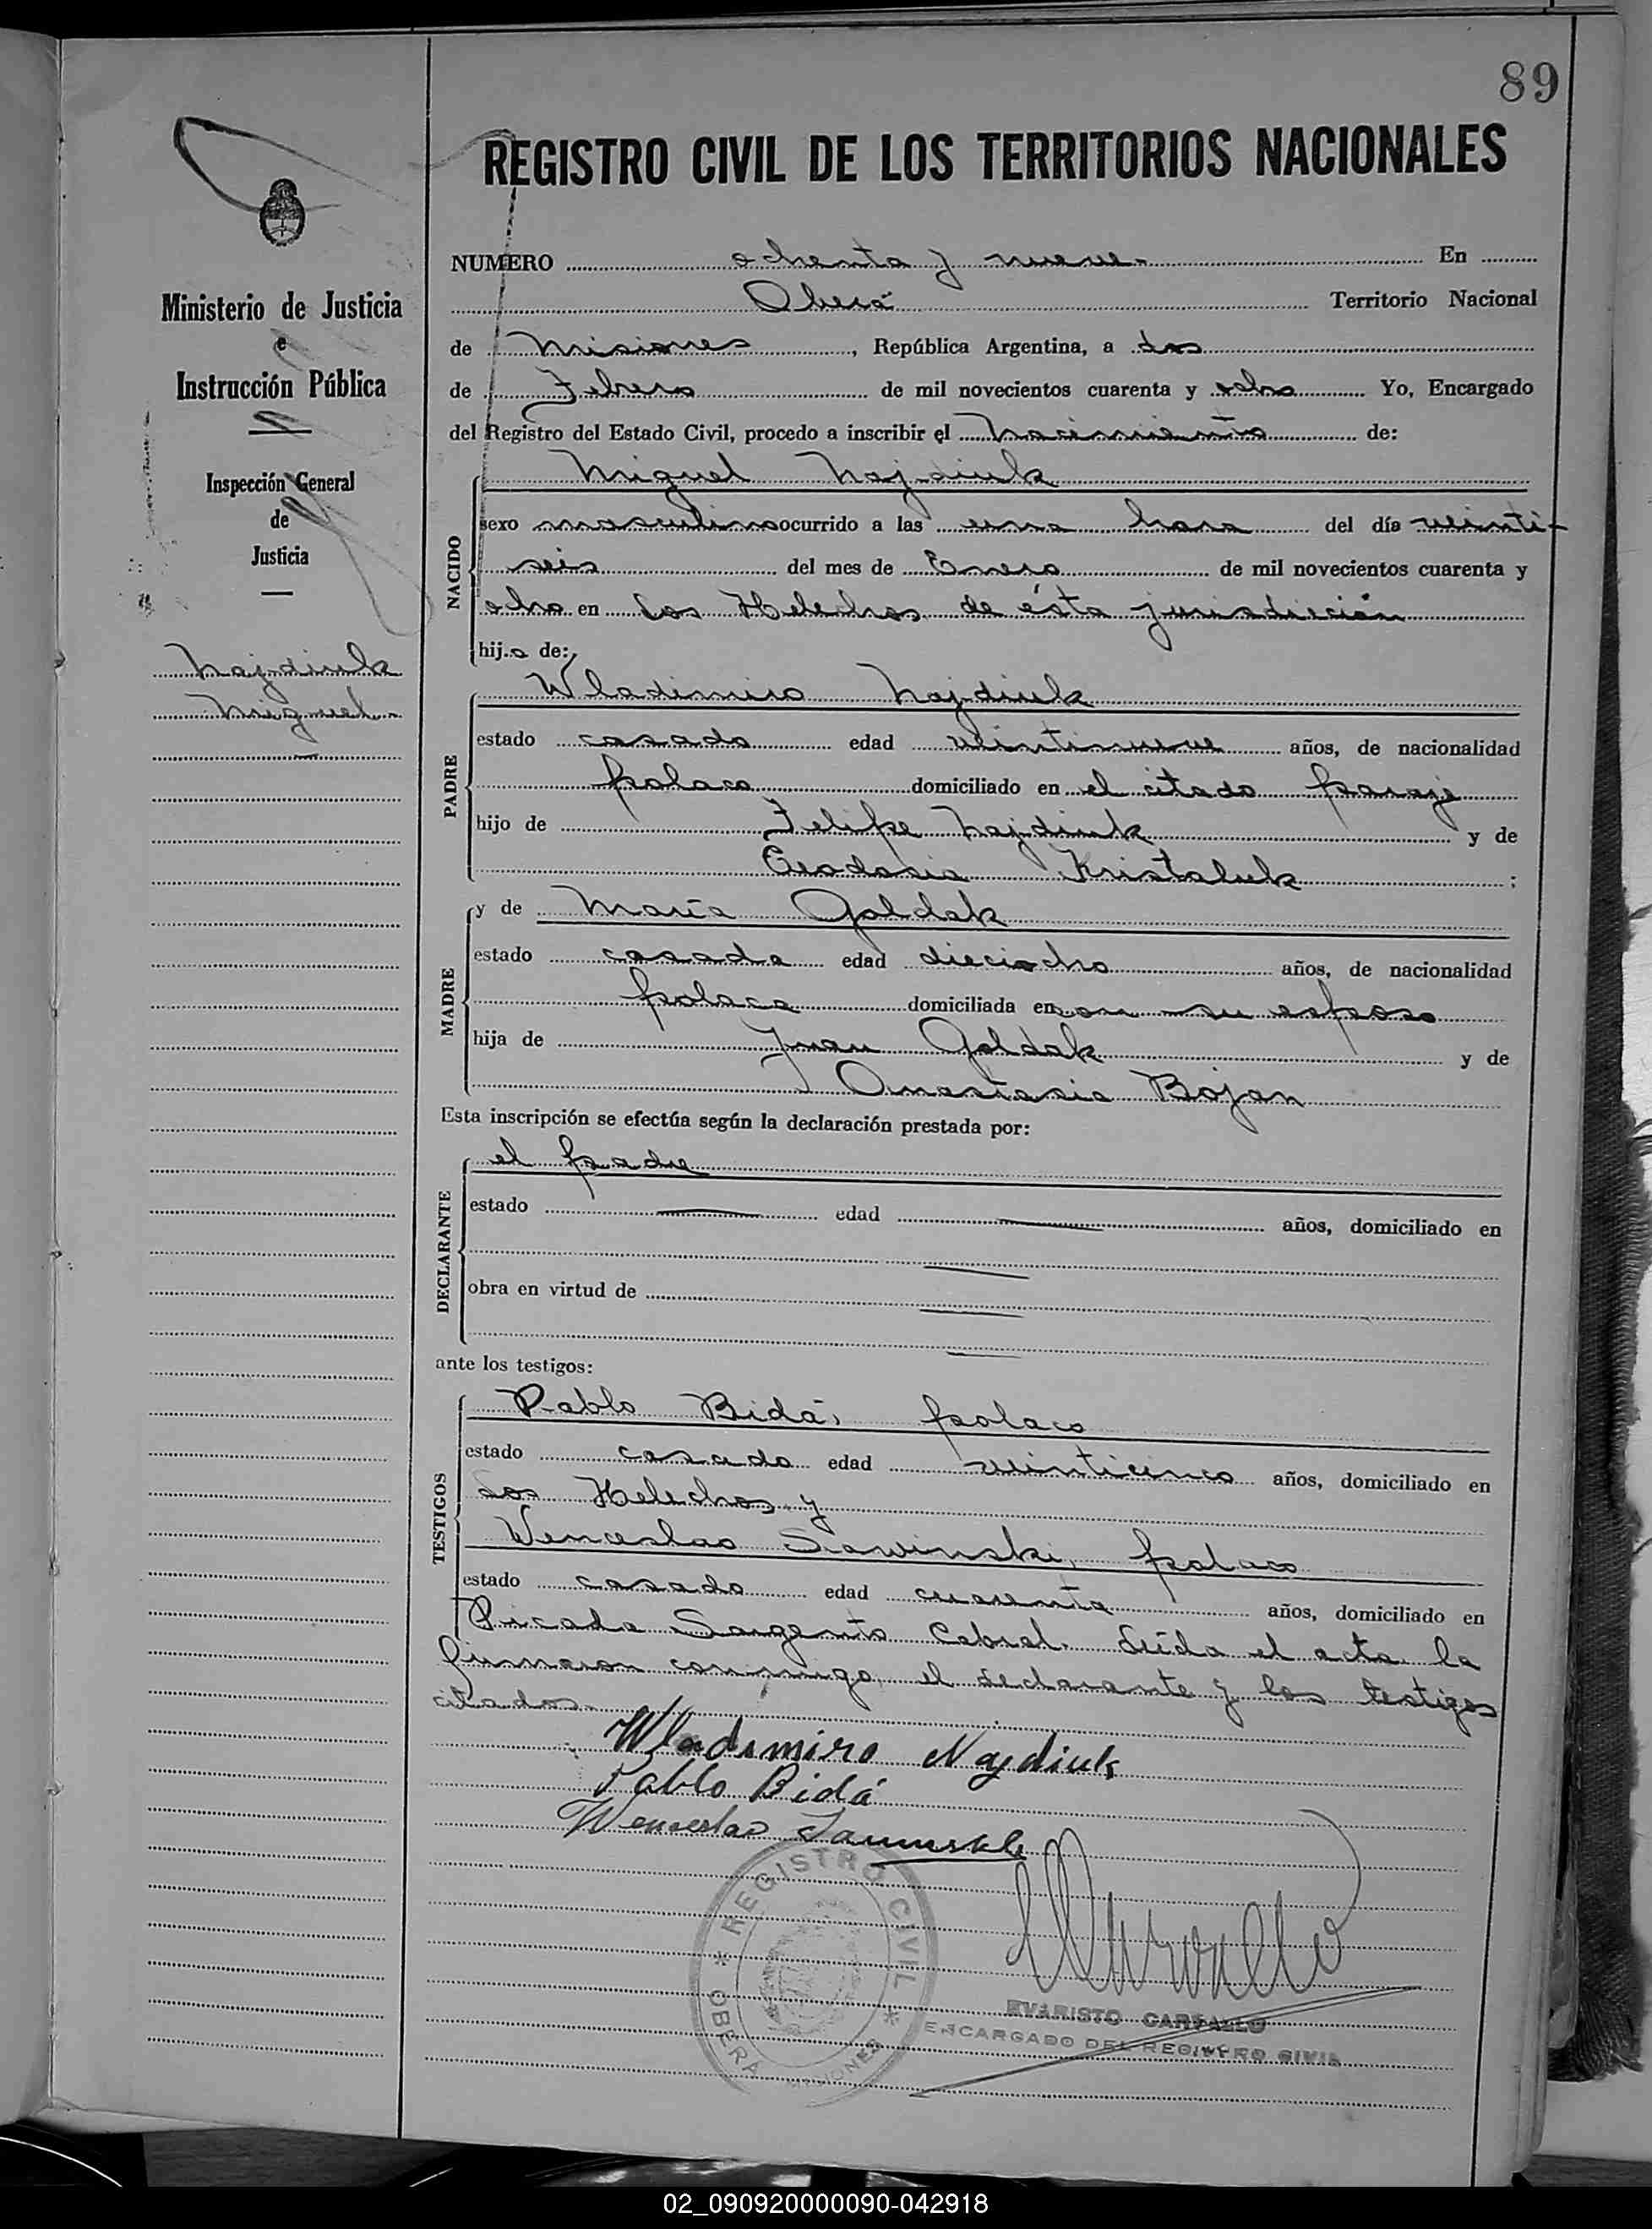 89
REGISTRO CIVIL DE LOS TERRITORIOS NACIONALES
Ministerio de Justicia
e
Instrucción Pública
Inspección General
de
Justicia
Najdiuk
Miguel.
NUMERO ochenta y nueve. En
Oberá Territorio Nacional
de Misiones, República Argentina, a dos
de Febrero de mil novecientos cuarenta y ocho Yo, Encargado
del Registro del Estado Civil, procedo a inscribir el nacimiento de:
NACIDO
Miguel Najdiuk
sexo masculino ocurrido a las una hora del día veinti-
seis del mes de Enero de mil novecientos cuarenta y
ocho en Los Helechos de ésta jurisdicción
hijo de:
PADRE
Wladimiro Najdiuk
estado casado edad veintinueve años, de nacionalidad
polaco domiciliado en el citado paraje
hijo de Felipe Najdiuk y de
Teodosia Kristaluk;
MADRE
y de María Goldak
estado casada edad dieciocho años, de nacionalidad
polaca domiciliada en con su esposo
hija de Juan Goldak y de
Anastasia Bojan
Esta inscripción se efectúa según la declaración prestada por:
DECLARANTE
el padre
estado — edad — años, domiciliado en
—
obra en virtud de —
—
ante los testigos:
TESTIGOS
Pablo Bidá, polaco
estado casado edad veinticinco años, domiciliado en
Los Helechos y
Venceslao Sawinski, polaco
estado casado edad cuarenta años, domiciliado en
Picada Sargento Cabral. Leída el acta la
firmaron conmigo, el declarante y los testigos
citados.
Wladimiro Najdiuk
Pablo Bidá
Wenceslao
REGISTRO CIVIL
* OBERA MISIONES *
EVARISTO CARVALLO
ENCARGADO DEL REGISTRO CIVIL
02_090920000090-042918